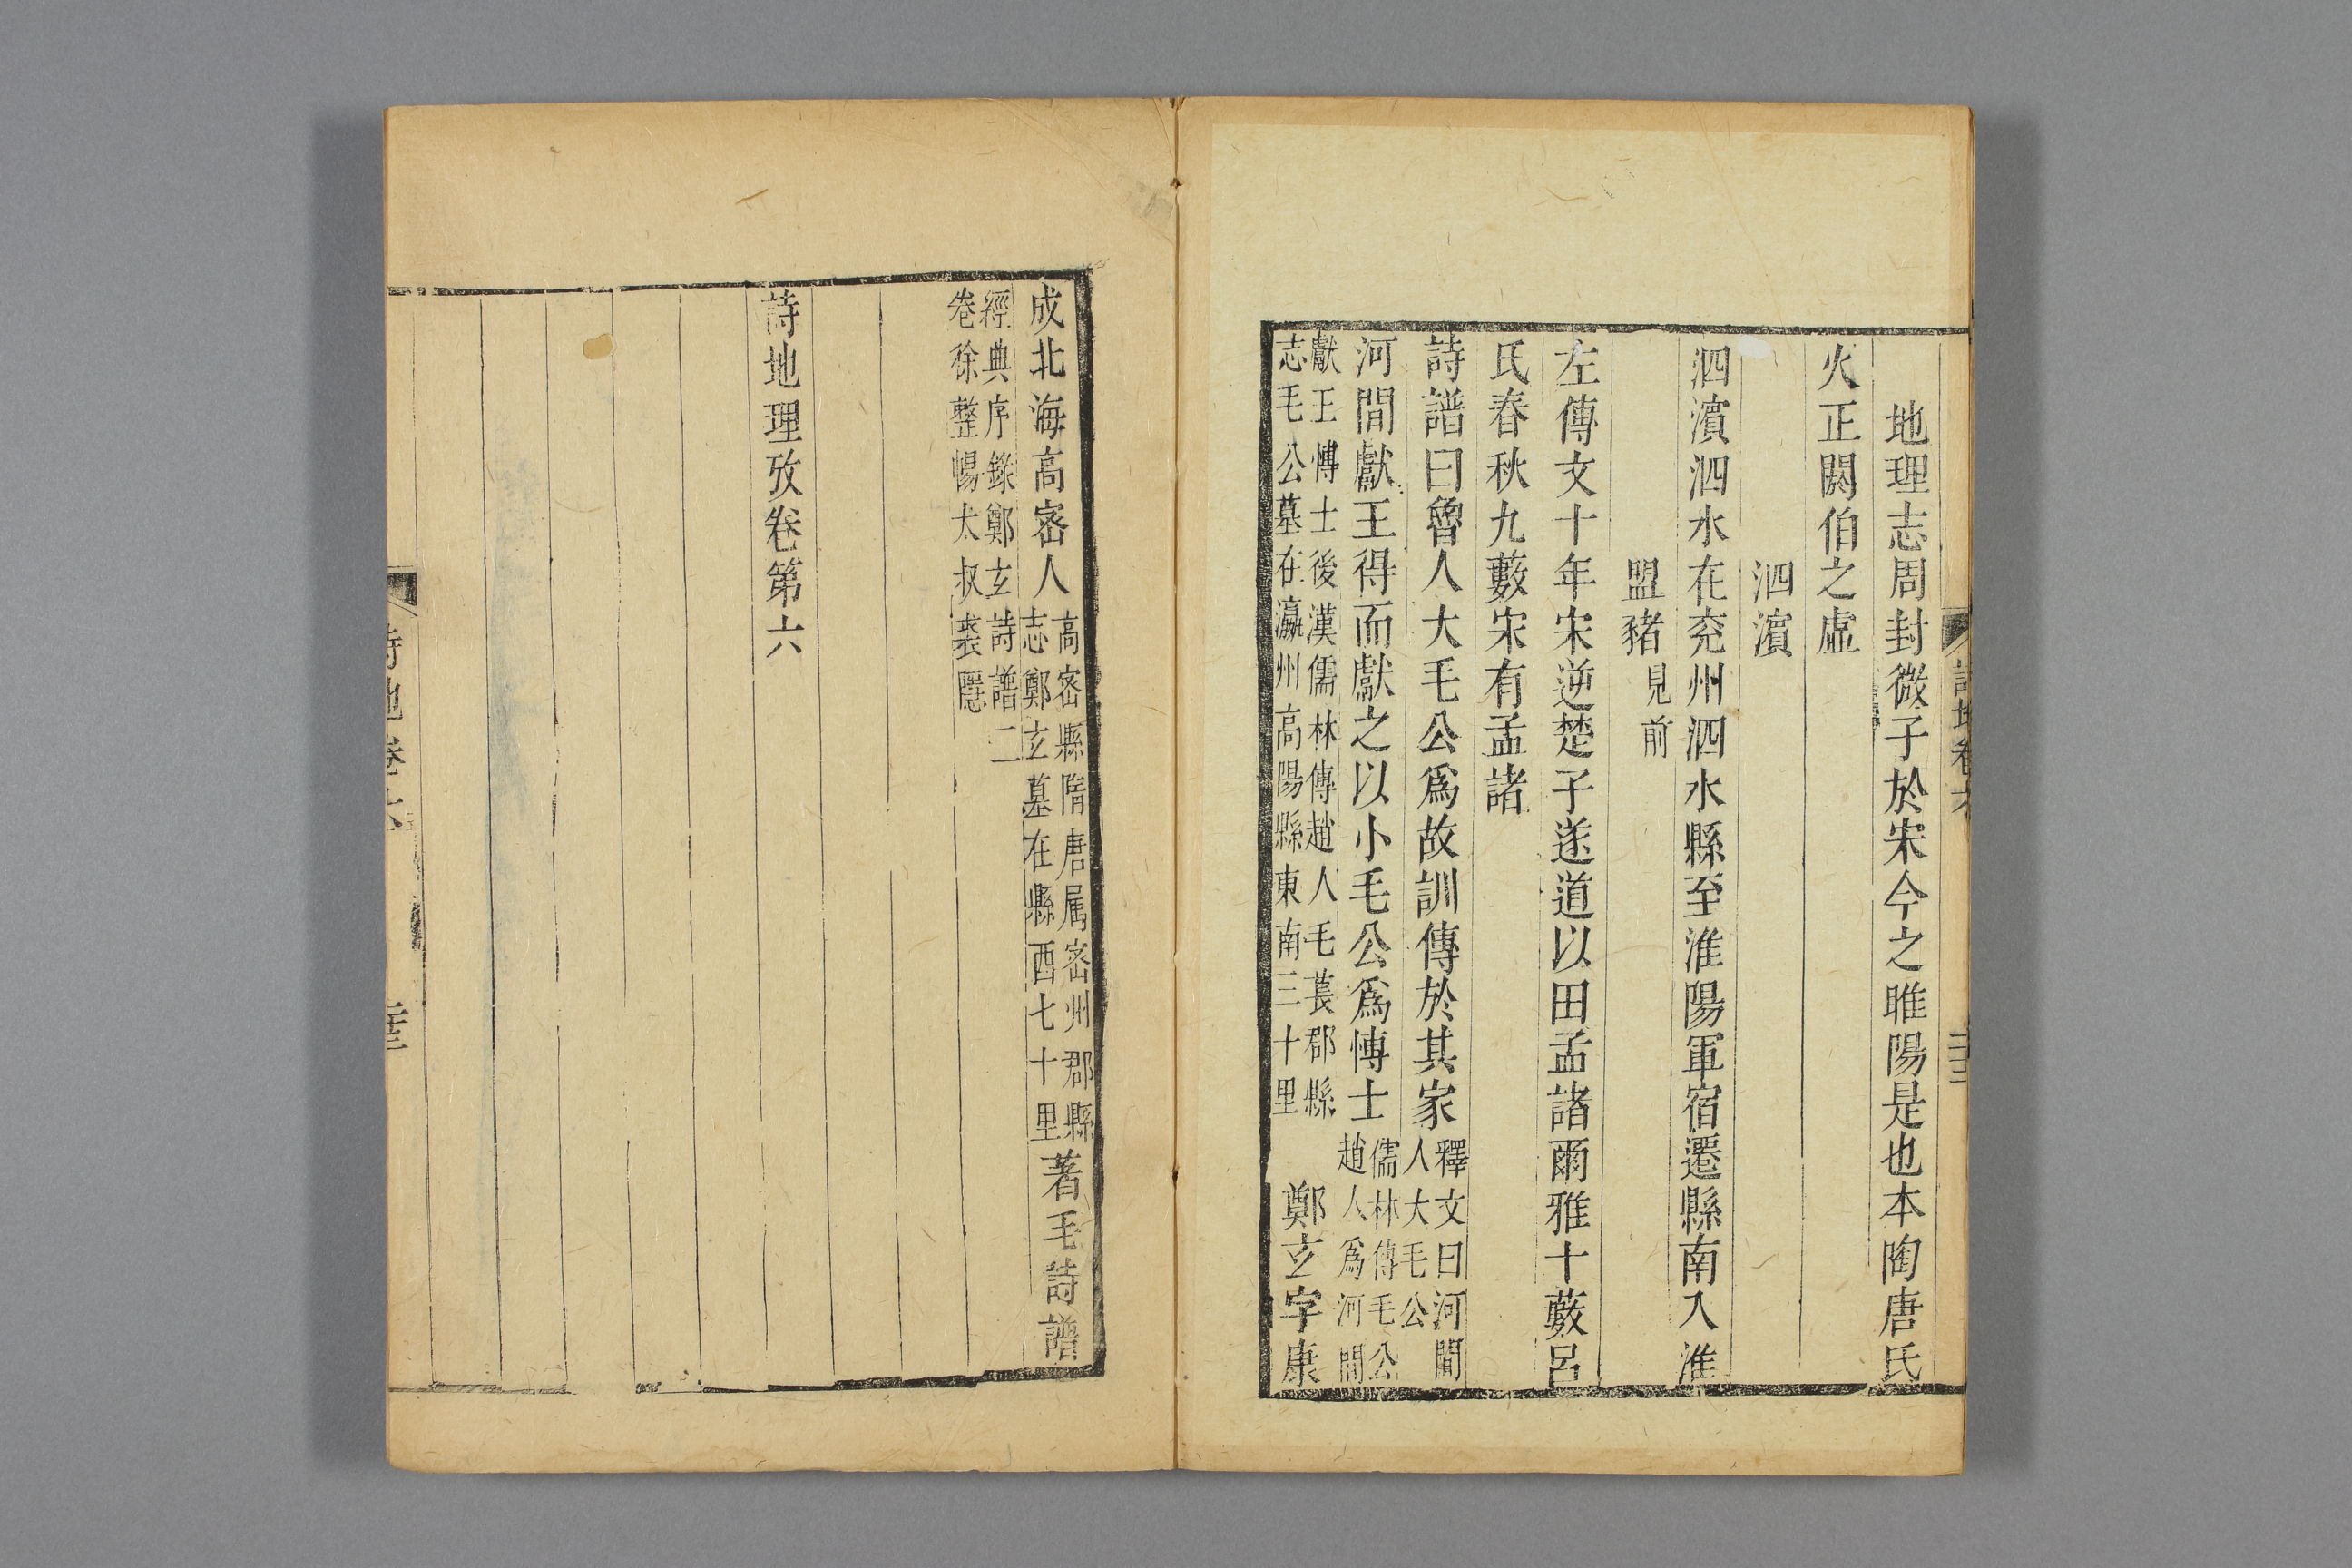 地理志周封微子於宋今之睢陽是也本陶唐氏
火正閼伯之虛
泗濱
泗濱泗水在兖州泗水縣至淮陽軍宿遷縣南入淮
盟豬見前
左傳文十年宋逆楚子遂道以田孟諸爾雅十藪呂
氏春秋九藪宋有孟諸
詩譜曰魯人大毛公爲故訓傳於其家釋文曰河間人大毛公
河間獻王得而獻之以小毛公爲博士儒林傳毛公趙人爲河間
獻王博士後漢儒林傳趙人毛萇郡縣志毛公墓在瀛州高陽縣東南三十里 鄭玄字康
成北海高密人高密縣隋唐属密州郡縣志鄭玄墓在縣西七十里著毛詩譜
經典序錄鄭玄詩譜二卷徐整暢太叔裘隱
詩地理攷卷第六
詩地卷六